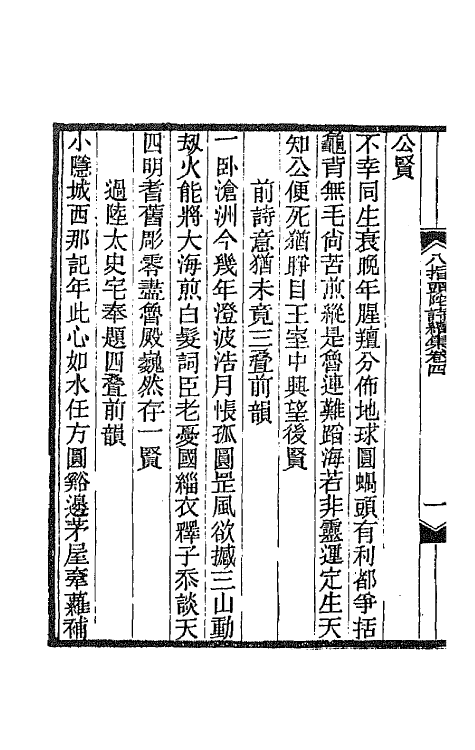 八指頭陀詩續集卷四
一
公賢
不幸同生衰晚年腥羶分佈地球圓蝸頭有利都爭括
龜背無毛尙苦煎縱是魯連難蹈海若非靈運定生天
知公便死猶睜目王室中興望後賢
前詩意猶未竟三疊前韻
一卧滄洲今幾年澄波浩月悵孤圓罡風欲撼三山動
刼火能將大海煎白髮詞臣老憂國緇衣釋子忝談天
四明耆舊彫零盡魯殿巍然存一賢
過陸太史宅奉題四疊前韻
小隱城西那記年此心如水任方圓谿邊茅屋牽蘿補